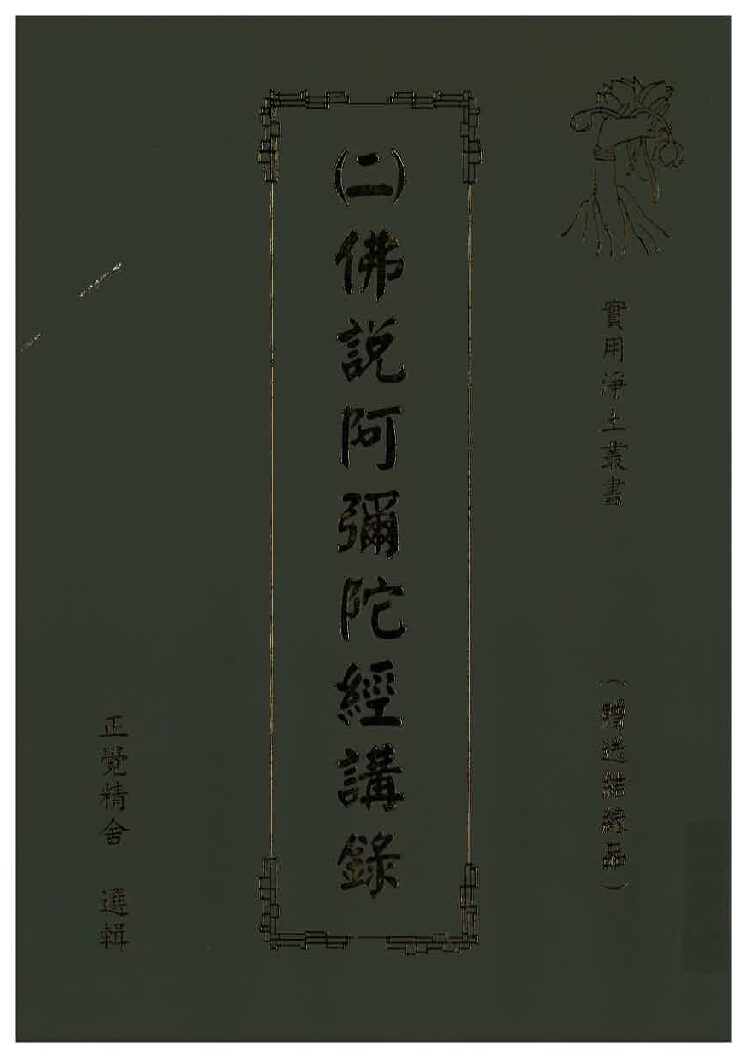 實用淨土叢書
(贈送結緣品)
(二)佛説阿彌陀經講錄
正覺精舍 選輯